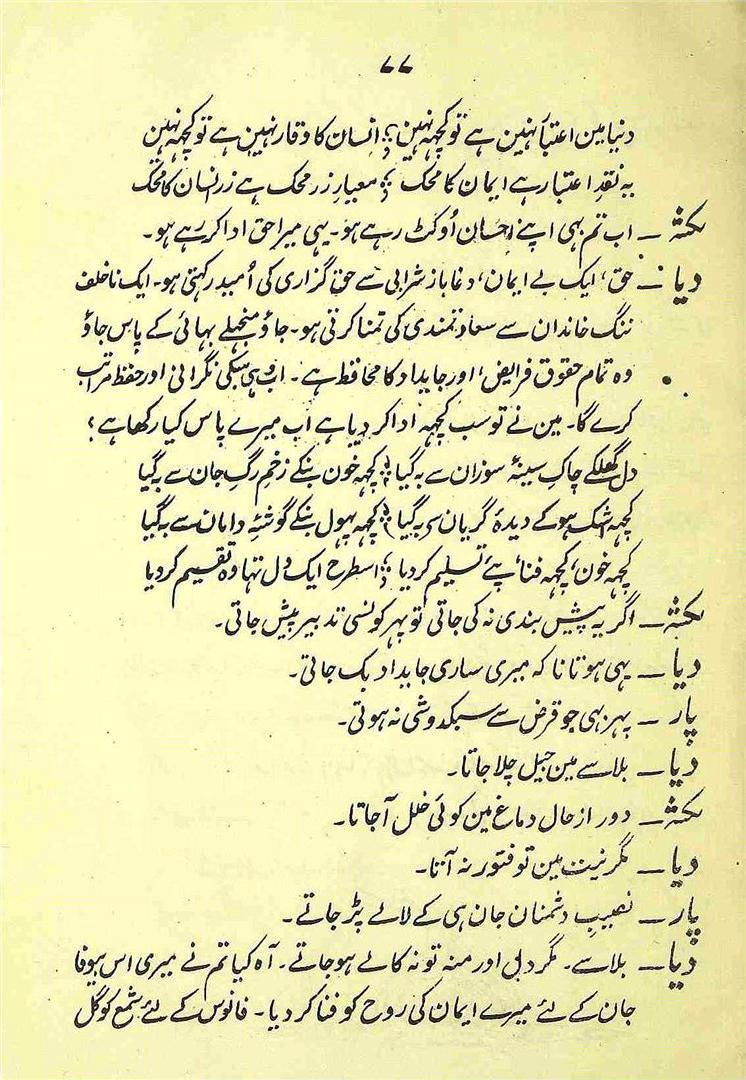 ۷۷
دنیا مین اعتبار نہین ہے تو کچہہ نہین ؛ انسان کا وقار نہین ہے تو کچہہ نہین
یہ نقدِ اعتبار ہے ایمان کا محک ؛ معیارِ زر محک ہے زر انسان کا محک
لکشمی ـ اب تم بہی اپنے احسان اُوگٹ رہے ہو۔ یہی میرا حق ادا کر رہے ہو۔
دیا ـ حق، ایک بے ایمان، دغا باز شرابی سے حق گزاری کی اُمید رکہتی ہو۔ ایک ناخلف
ننگ خاندان سے سعادتمندی کی تمنا کرتی ہو۔ جاؤ منجہلے بہائی کے پاس جاؤ
وہ تمام حقوق فرایض، اور جایداد کا محافظ ہے۔ اب وہی سبکی نگرانی اور حفظ مراتب
کرے گا۔ مین نے تو سب کچہہ ادا کر دیا ہے اب میرے پاس کیا رکھا ہے ؛
دل گھلکے چاکِ سینۂ سوزان سے بہ گیا ؛ کچہہ خون بنکے زخمِ رگِ جان سے بہ گیا
کچہہ اشک ہو کے دیدۂ گریان سے بہ گیا ؛ کچہہ پہول بنکے گوشۂ دامان سے بہ گیا
کچہہ خون، کچہہ فنا پئے تسلیم کر دیا ؛ اسطرح ایک دل تہا وہ تقسیم کر دیا
لکشمی ـ اگر یہ پیش بندی نہ کی جاتی تو پہر کونسی تدبیر پیش جاتی۔
دیا ـ یہی ہوتا نا کہ میری ساری جایداد بک جاتی۔
پار ـ پہر بہی جو قرض سے سبکدوشی نہ ہوتی۔
دیا ـ بلا سے مین جیل چلا جاتا۔
لکشمی ـ دور از حال دماغ مین کوئی خلل آ جاتا۔
دیا ـ مگر نیت مین تو فتور نہ آتا۔
پار ـ نصیبِ دشمنان جان ہی کے لالے پڑ جاتے۔
دیا ـ بلا سے۔ مگر دل اور منہ تو نہ کالے ہو جاتے۔ آہ کیا تم نے میری اس بیوفا
جان کے لئے میرے ایمان کی روح کو فنا کر دیا۔ فانوس کے لئے شمع کو گل